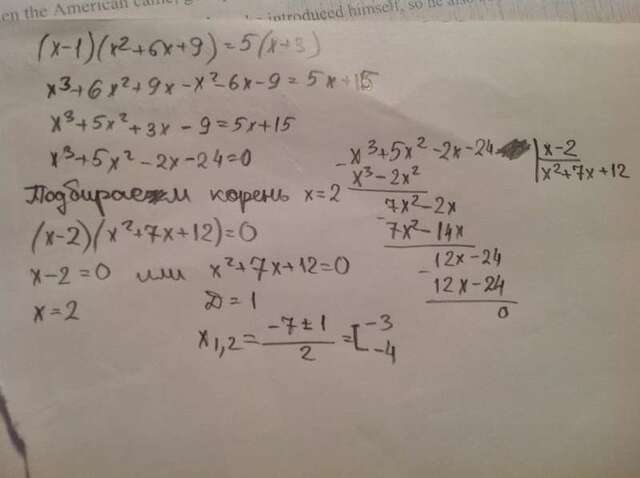 en the American came, g
introduced himself, so he also
(x-1)(x²+6x+9)=5(x+3)
x³+6x²+9x-x²-6x-9=5x+15
x³+5x²+3x-9=5x+15
x³+5x²-2x-24=0
Подбираем корень x=2
(x-2)(x²+7x+12)=0
x-2=0 или x²+7x+12=0
x=2 D=1
x1,2=(-7±1)/2=[-3 -4
-x³+5x²-2x-24 | x-2
x³-2x² | x²+7x+12
7x²-2x
-7x²-14x
12x-24
-12x-24
0